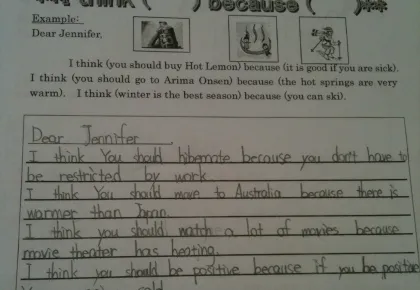 think ( ) because ( )
Example:
Dear Jennifer,
I think (you should buy Hot Lemon) because (it is good if you are sick).
I think (you should go to Arima Onsen) because (the hot springs are very
warm). I think (winter is the best season) because (you can ski).
Dear Jennifer
I think You should hibernate because you don't have to
be restricted by work.
I think You should move to Australia because there is
warmer than Japan.
I think you should watch a lot of movies because
movie theater has heating.
I think you should be positive because if you be positive